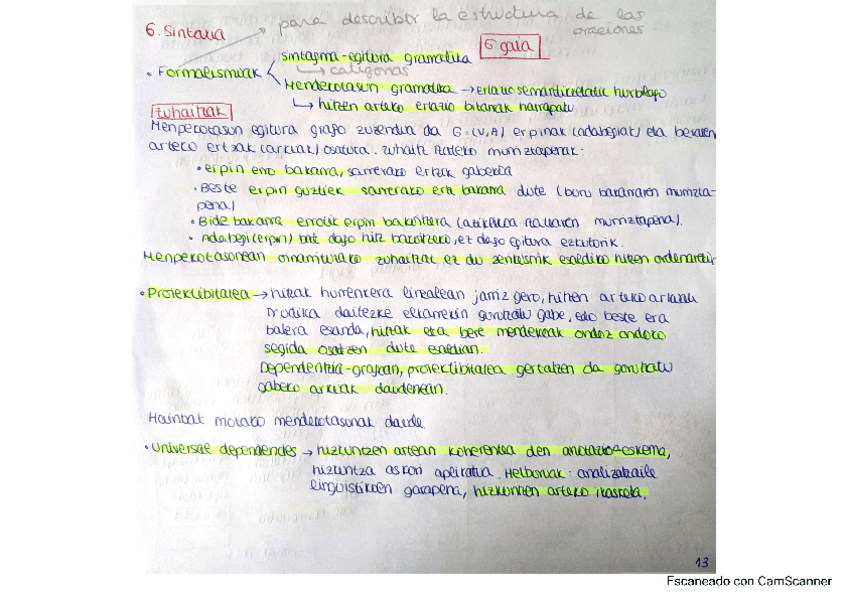 6. Sintaxia
para describir la estructura de las oraciones
6 gaia
• Formalismoak
sintagma-egitura gramatika
↳ categorias
Mendekotasun gramatika → erlazio semantikoetatik hurbilago
↳ hitzen arteko erlazio bitarrak harrapatu
Zuhaitzak
Menpekotasun egitura grafo zuzendua da G=(V,A) erpinak (adabegiak) eta beraien
arteko ertzak (arkuak) osatuta. Zuhaitz izateko murriztapenak:
• erpin erro bakarra, sarrerako ertzik gabekoa
• Beste erpin guztiek sarrerako ertz bakarra dute (buru bakarraren murrizta-
pena)
• Bide bakarra errotik erpin bakoitzera (aziklikoa izatearen murriztapena).
• Adabegi (erpin) bat dago hitz bakoitzeko, ez dago egitura ezkuturik.
Menpekotasunean oinarriturako zuhaitzak ez du zentzurik esaldiko hitzen ordenarekin
• Proiektibitatea → hitzak hurrenkera linealean jarriz gero, hitzen arteko arkuak
irudika daitezke elkarrekin gurutzatu gabe, edo beste era
batera esanda, hitzak eta bere mendekoak ondoz ondoko
segida osatzen dute esaldian.
Dependentzia-grafoan, proiektibitatea gertatzen da gurutzatu
gabeko arkuak daudenean.
Hainbat motako mendekotasunak daude
• Universal dependencies → hizkuntzen artean koherentea den anotazio-eskema,
hizkuntza askori aplikatua. Helburuak: analizatzaile
linguistikoen garapena, hizkuntzen arteko ikasketa.
13
Escaneado con CamScanner